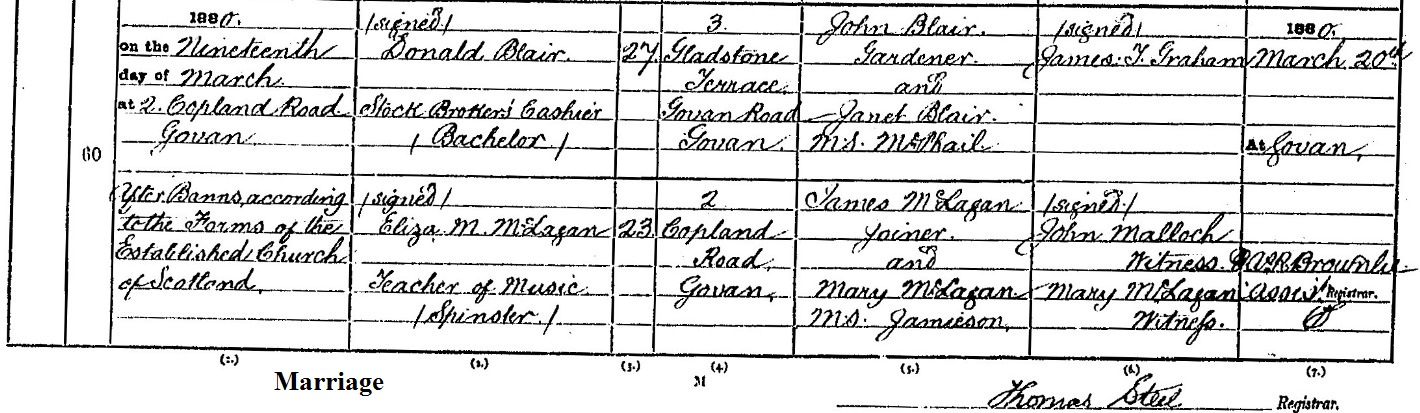 1880.
on the Nineteenth
day of March
at 2. Copland Road
Govan
60
After Banns, according
to the Forms of the
Established Church
of Scotland.
(signed)
Donald Blair.
Stock Brokers' Cashier
(Bachelor)
(signed)
Eliza. M. McLagan
Teacher of Music
(Spinster)
27
23
3.
Gladstone
Terrace
Govan Road
Govan.
2
Copland
Road,
Govan,
John Blair.
Gardener.
and
Janet Blair.
M.S. McPhail.
James McLagan
Joiner.
and
Mary McLagan
M.S. Jamieson,
(signed)
James. T. Graham
(signed)
John Malloch
Witness.
Mary McLagan
Witness.
1880.
March 20th
At Govan,
Brownlie
Assist Registrar.
(1.) (2.) (3.) (4.) (5.) (6.) (7.)
Marriage
M
Thomas Steel Registrar.